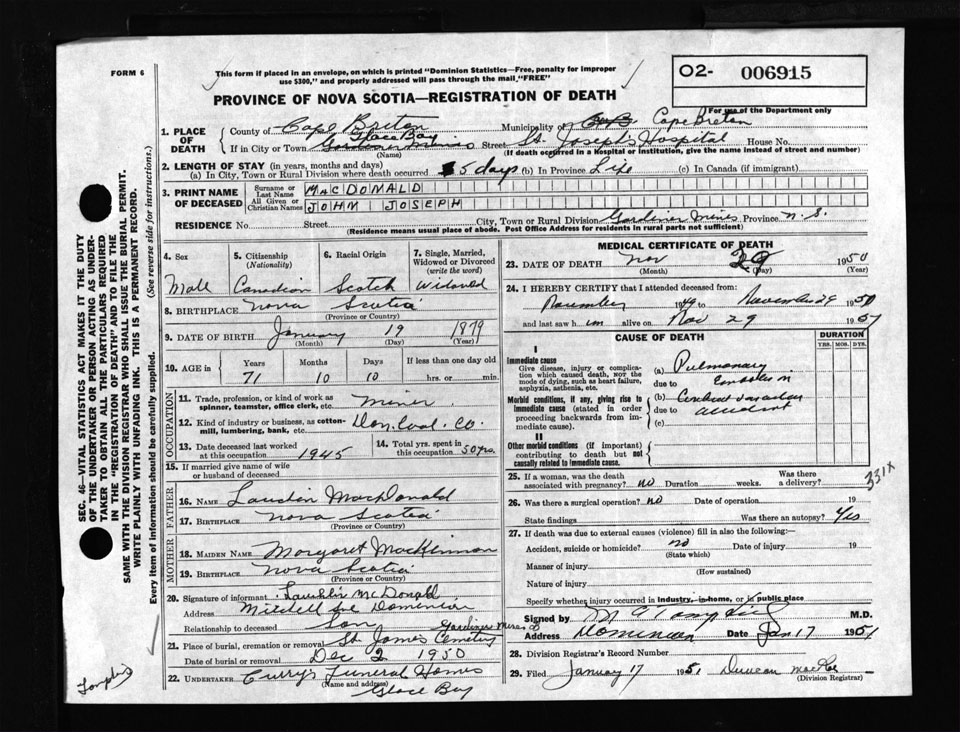 FORM 6
This form if placed in an envelope, on which is printed "Dominion Statistics—Free, penalty for improper
use $300," and properly addressed will pass through the mail "FREE"
O2- 006915
For use of the Department only
PROVINCE OF NOVA SCOTIA—REGISTRATION OF DEATH
1. PLACE OF DEATH
County of Cape Breton Municipality of Cape Breton
Glace Bay
If in City or Town Gardiner Mines Street St. Joseph's Hospital House No.
(Name) (If death occurred in a Hospital or Institution, give the name instead of street and number)
2. LENGTH OF STAY (in years, months and days)
(a) In City, Town or Rural Division where death occurred 5 days (b) In Province Life (c) In Canada (if immigrant)
3. PRINT NAME OF DECEASED
Surname or Last Name MACDONALD
All Given or Christian Names JOHN JOSEPH
RESIDENCE No. Street City, Town or Rural Division Gardiner Mines Province N. S.
(Residence means usual place of abode. Post Office Address for residents in rural parts not sufficient)
4. Sex Male
5. Citizenship (Nationality) Canadian
6. Racial Origin Scotch
7. Single, Married, Widowed or Divorced (write the word) Widowed
8. BIRTHPLACE Nova Scotia
(Province or Country)
9. DATE OF BIRTH January 19 1879
(Month) (Day) (Year)
10. AGE in Years Months Days If less than one day old
71 10 10 hrs. or min.
OCCUPATION
11. Trade, profession, or kind of work as spinner, teamster, office clerk, etc. Miner
12. Kind of industry or business, as cotton-mill, lumbering, bank, etc. Dom. Coal. Co.
13. Date deceased last worked at this occupation 1945
14. Total yrs. spent in this occupation 50 yrs.
15. If married give name of wife or husband of deceased
FATHER
16. NAME MacDonald
17. BIRTHPLACE Nova Scotia
(Province or Country)
MOTHER
18. MAIDEN NAME Margaret MacKinnon
19. BIRTHPLACE Nova Scotia
(Province or Country)
20. Signature of informant Lauchlin McDonald
Address Mitchell Ave Dominion
Relationship to deceased Son
Gardiner Mines
21. Place of burial, cremation or removal St. James Cemetery
Date of burial or removal Dec 2 1950
22. UNDERTAKER Curry's Funeral Homes
(Name and address)
Glace Bay
MEDICAL CERTIFICATE OF DEATH
23. DATE OF DEATH Nov 29 1950
(Month) (Day) (Year)
24. I HEREBY CERTIFY that I attended deceased from:
19 to November 29 1950
and last saw him alive on Nov 29 195
CAUSE OF DEATH
DURATION
YRS. MOS. DYS.
I
Immediate cause
Give disease, injury or complication which caused death, not the mode of dying, such as heart failure, asphyxia, asthenia, etc.
(a) Pulmonary
due to
Morbid conditions, if any, giving rise to immediate cause (stated in order proceeding backwards from immediate cause).
(b) Cerebral vascular
due to accident
(c)
II
Other morbid conditions (if important) contributing to death but not causally related to immediate cause.
25. If a woman, was the death associated with pregnancy? no Duration weeks. Was there a delivery?
331X
26. Was there a surgical operation? no Date of operation 19
State findings Was there an autopsy? Yes
27. If death was due to external causes (violence) fill in also the following:—
Accident, suicide or homicide? no Date of injury 19
(State which)
Manner of injury
(How sustained)
Nature of injury
Specify whether injury occurred in industry, in home, or in public place
Signed by M.D.
Address Dominion Date Jan 17 1951
28. Division Registrar's Record Number
29. Filed January 17 1951 Duncan MacRae
(Division Registrar)
SEC. 46—VITAL STATISTICS ACT MAKES IT THE DUTY
OF THE UNDERTAKER OR PERSON ACTING AS UNDER-
TAKER TO OBTAIN ALL THE PARTICULARS REQUIRED
IN THE "REGISTRATION OF DEATH" AND TO FILE THE
SAME WITH THE DIVISION REGISTRAR WHO SHALL ISSUE THE BURIAL PERMIT.
WRITE PLAINLY WITH UNFADING INK. THIS IS A PERMANENT RECORD.
Every item of information should be carefully supplied. (See reverse side for instructions.)